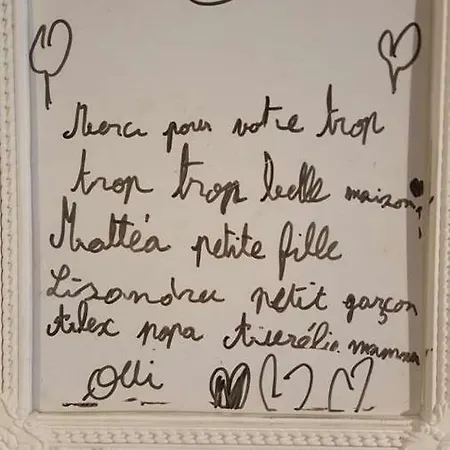 Merci pour votre trop
trop trop belle maison!
Mattéa petite fille
Lisandru petit garçon
Alex papa Aurélie maman
Olli